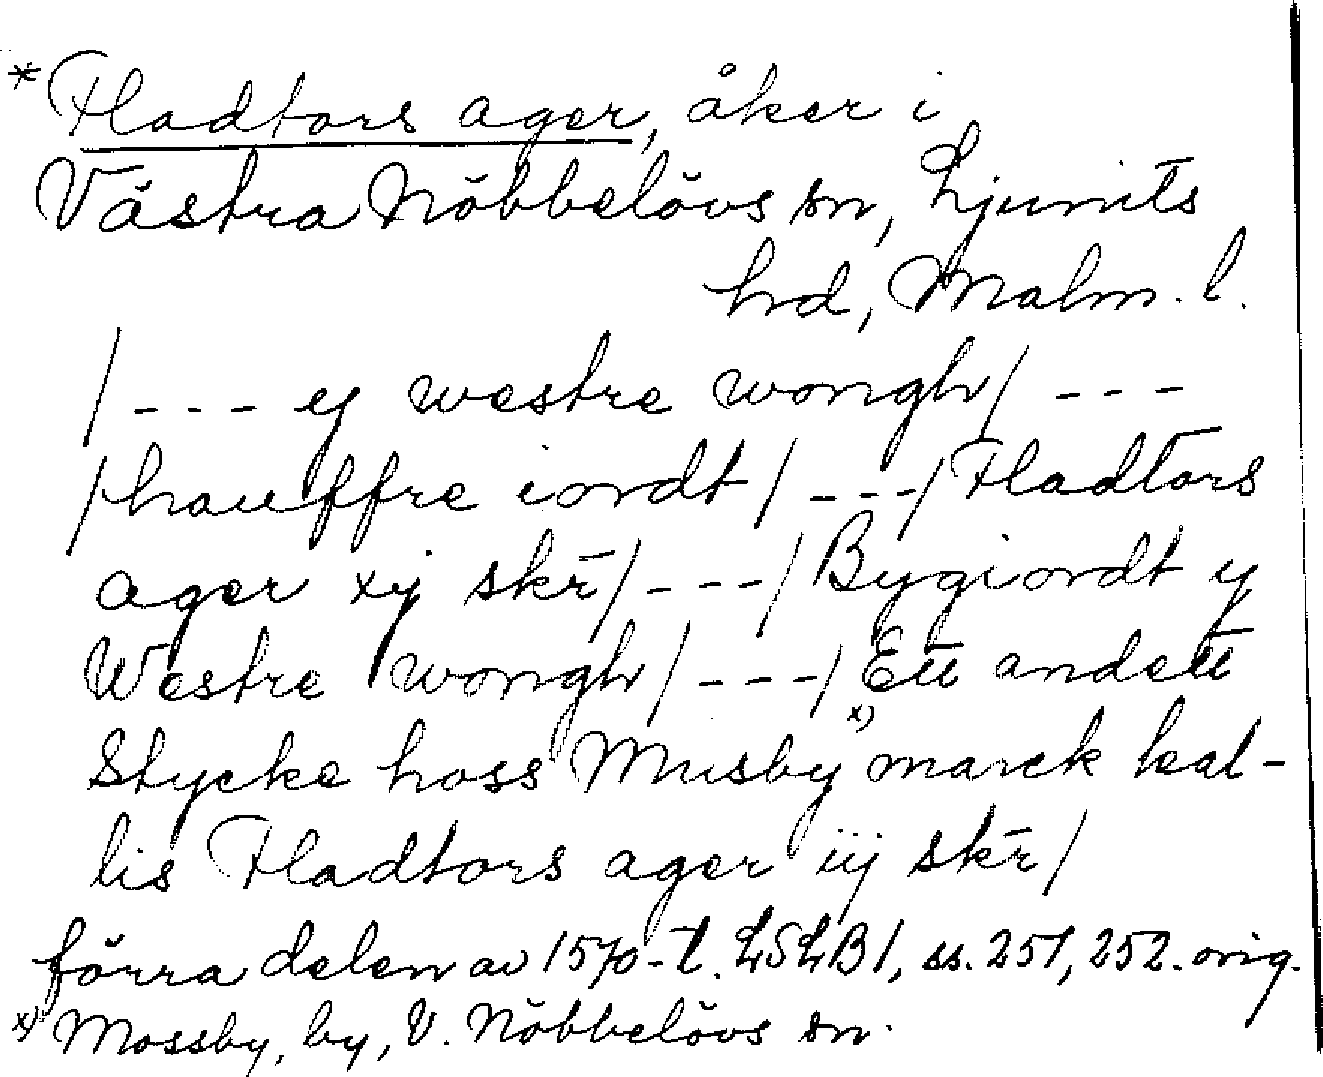 *Fladtors ager, åker i
Västra Nöbbelövs sn, Ljunits
hrd, Malm. l.
/--- ej westre wongh/ ---
/hauffre iordt/ ---/ Fladtors
ager xij skr̄/ ---/ Bygiordt y
Westre wongh/ ---/ Ett andett
Stycke hoss Musby x) marck kal-
lis Fladtors ager iij skr̄/
förra delen av 1570-t. LSLB1, ss. 251, 252. orig.
x) Mossby, by, V. Nöbbelövs sn.